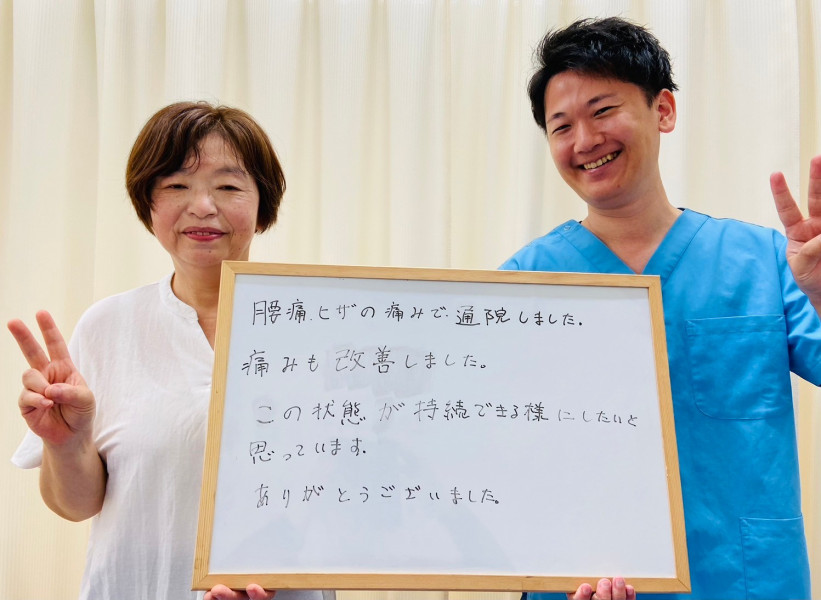 腰痛、ヒザの痛みで通院しました。
痛みも改善しました。
この状態が持続できる様にしたいと
思っています。
ありがとうございました。